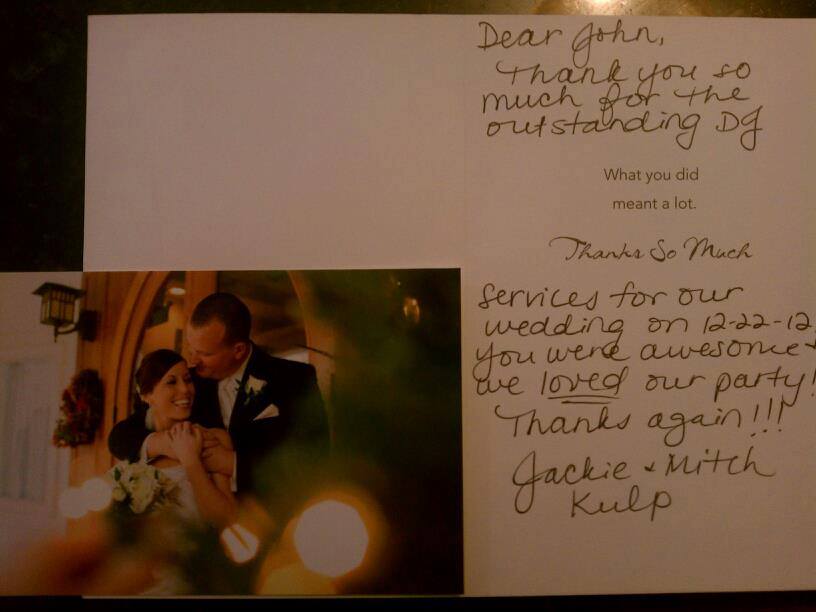 Dear John,
Thank you so
much for the
outstanding DJ
What you did
meant a lot.
Thanks So Much
services for our
wedding on 12-22-12,
you were awesome +
we loved our party!
Thanks again!!!
Jackie + Mitch
Kulp